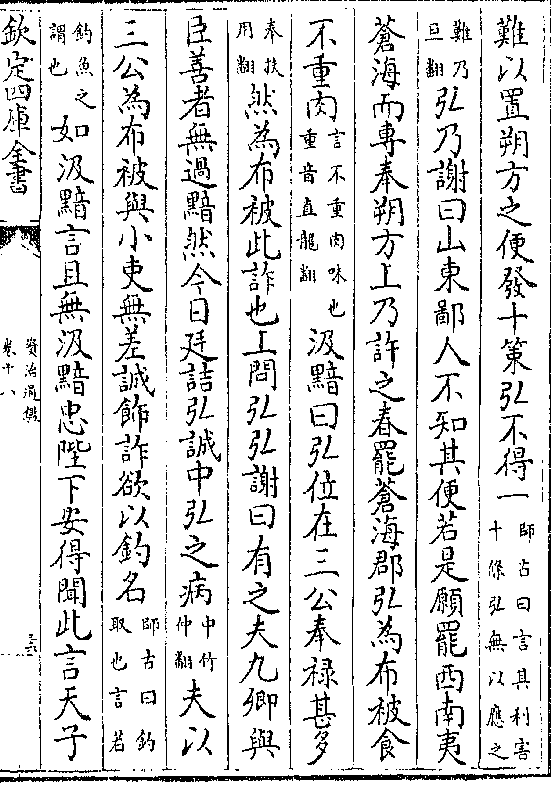 難以置朔方之便發十策弘不得一師古曰言其利害十條弘無以應之
難乃旦翻弘乃謝曰山東鄙人不知其便若是願罷西南夷
蒼海而專奉朔方上乃許之春罷蒼海郡弘為布被食
不重肉言不重肉味也重音直龍翻汲黯曰弘位在三公奉禄甚多
奉扶用翻然為布被此詐也上問弘弘謝曰有之夫九卿與
臣善者無過黯然今日廷詰弘誠中弘之病中竹仲翻夫以
三公為布被與小吏無差誠飾詐欲以釣名師古曰釣取也言若
釣魚之謂也如汲黯言且無汲黯忠陛下安得聞此言天子
欽定四庫全書
資治通鑑
卷十八